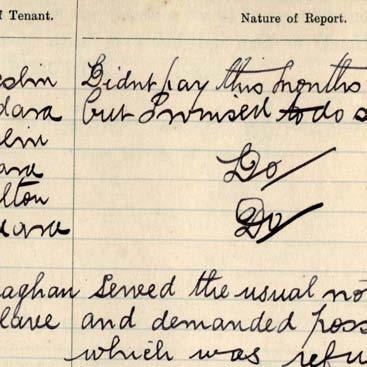 f Tenant. Nature of Report.
Didnt pay this months
dara but Promised to do s
Do/
lton Do/
dara
aghan Served the usual no
lave and demanded poss
which was refu